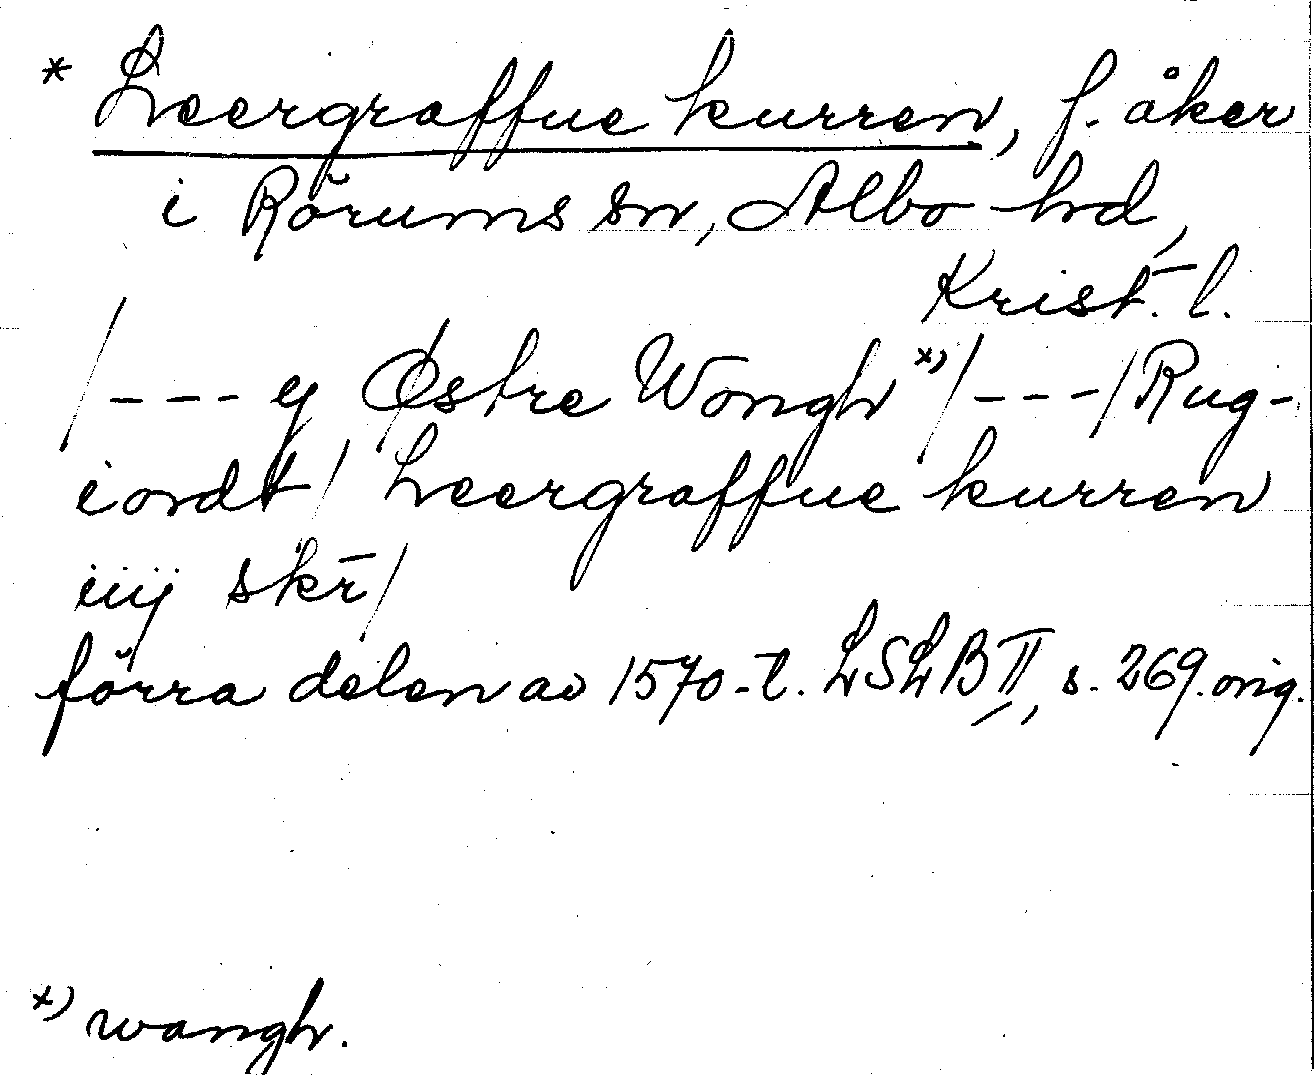 * Leergraffue kurren, f. åker
i Rörums sn, Albo hd,
Krist. l.
/--- y Østre Wongh x) /---/ Rug-
iordt / Leergraffue kurren
iiij skr̄ /
förra delen av 1570-t. LSLB II, s. 269. orig.
x) wangh.